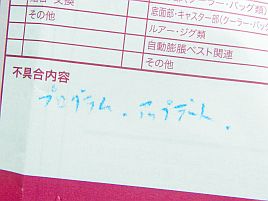 その他
底面部・キャスター部(クーラー・バッグ類)
ルアー・ジグ類
自動膨脹ベスト関連
その他
不具合内容
プログラム．アップデート．